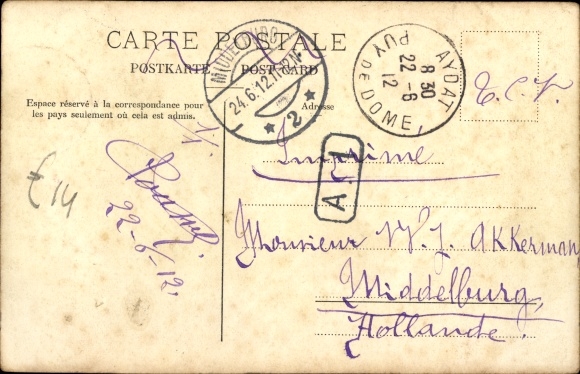 CARTE POSTALE
POSTKARTE POST CARD
Espace réservé à la correspondance pour
les pays seulement où cela est admis.
Adresse
MIDDELBURG
24.6.12.
2
AYDAT
8 30
22 -6
12
PUY DE DOME
T.C.V.
Imprimé
A 1
£14
22-6-12.
Monsieur W. J. Akkerman,
Middelburg,
Hollande.